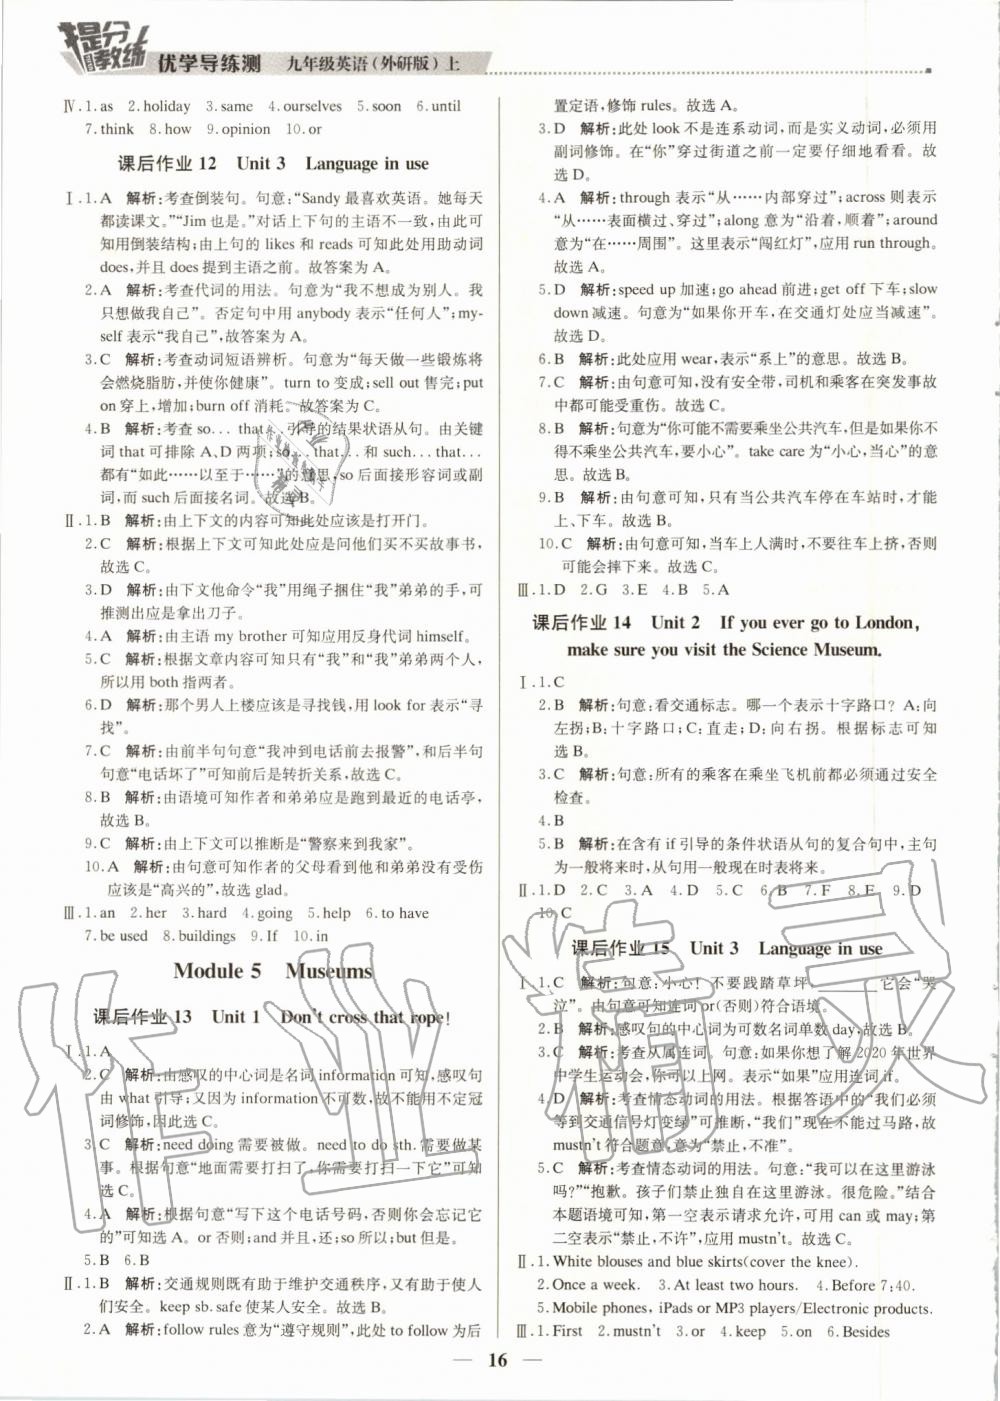 提分教练 优学导练测 九年级英语(外研版)上
Ⅳ.1.as 2.holiday 3.same 4.ourselves 5.soon 6.until
7.think 8.how 9.opinion 10.or
课后作业 12 Unit 3 Language in use
Ⅰ.1.A 解析:考查倒装句。句意:“Sandy 最喜欢英语。她每天
都读课文。”“Jim 也是。”对话上下句的主语不一致,由此可
知用倒装结构;由上句的 likes 和 reads 可知此处用助动词
does,并且 does 提到主语之前。故答案为 A。
2.A 解析:考查代词的用法。句意为“我不想成为别人。我
只想做我自己”。否定句中用 anybody 表示“任何人”;my-
self 表示“我自己”,故答案为 A。
3.C 解析:考查动词短语辨析。句意为“每天做一些锻炼将
会燃烧脂肪,并使你健康”。turn to 变成;sell out 售完;put
on 穿上,增加;burn off 消耗。故答案为 C。
4.B 解析:考查 so... that...引导的结果状语从句。由关键
词 that 可排除 A、D 两项;so...that...和 such...that...
都有“如此……以至于……”的意思,so 后面接形容词或副
词,而 such 后面接名词。故选 B。
Ⅱ.1.B 解析:由上下文的内容可知此处应该是打开门。
2.C 解析:根据上下文可知此处应是问他们买不买故事书,
故选 C。
3.D 解析:由下文他命令“我”用绳子捆住“我”弟弟的手,可
推测出应是拿出刀子。
4.A 解析:由主语 my brother 可知应用反身代词 himself。
5.C 解析:根据文章内容可知只有“我”和“我”弟弟两个人,
所以用 both 指两者。
6.D 解析:那个男人上楼应该是寻找钱,用 look for 表示“寻
找”。
7.C 解析:由前半句句意“我冲到电话前去报警”,和后半句
句意“电话坏了”可知前后是转折关系,故选 C。
8.B 解析:由语境可知作者和弟弟应是跑到最近的电话亭,
故选 B。
9.C 解析:由上下文可以推断是“警察来到我家”。
10.A 解析:由句意可知作者的父母看到他和弟弟没有受伤
应该是“高兴的”,故选 glad。
Ⅲ.1.an 2.her 3.hard 4.going 5.help 6.to have
7.be used 8.buildings 9.If 10.in
Module 5 Museums
课后作业 13 Unit 1 Don't cross that rope!
Ⅰ.1.A
2.C 解析:由感叹的中心词是名词 information 可知,感叹句
由 what 引导;又因为 information 不可数,故不能用不定冠
词修饰,因此选 C。
3.C 解析:need doing 需要被做。need to do sth. 需要做某
事。根据句意“地面需要打扫了,你需要打扫一下它”可知
选 C。
4.A 解析:根据句意“写下这个电话号码,否则你会忘记它
的”可知选 A。or 否则;and 并且,和;so 所以;but 但是。
5.B 6.B
Ⅱ.1.B 解析:交通规则既有助于维护交通秩序,又有助于使人
们安全。keep sb. safe 使某人安全。故选 B。
2.A 解析:follow rules 意为“遵守规则”,此处 to follow 为后
置定语,修饰 rules。故选 A。
3.D 解析:此处 look 不是连系动词,而是实义动词,必须用
副词修饰。在“你”穿过街道之前一定要仔细地看看。故
选 D。
4.A 解析:through 表示“从……内部穿过”;across 则表示
“从……表面横过、穿过”;along 意为“沿着,顺着”;around
意为“在……周围”。这里表示“闯红灯”,应用 run through。
故选 A。
5.D 解析:speed up 加速;go ahead 前进;get off 下车;slow
down 减速。句意为“如果你开车,在交通灯处应当减速”。
故选 D。
6.B 解析:此处应用 wear,表示“系上”的意思。故选 B。
7.C 解析:由句意可知,没有安全带,司机和乘客在突发事故
中都可能受重伤。故选 C。
8.B 解析:句意为“你可能不需要乘坐公共汽车,但如果你不
得不乘坐公共汽车,要小心”。take care 为“小心,当心”的意
思。故选 B。
9.B 解析:由句意可知,只有当公共汽车停在车站时,才能
上、下车。故选 B。
10.C 解析:由句意可知,当车上人满时,不要往车上挤,否则
可能会摔下来。故选 C。
Ⅲ.1.D 2.G 3.E 4.B 5.A
课后作业 14 Unit 2 If you ever go to London,
make sure you visit the Science Museum.
Ⅰ.1.C
2.B 解析:句意:看交通标志。哪一个表示十字路口? A:向
左拐;B:十字路口;C:直走;D:向右拐。根据标志可知
选 B。
3.C 解析:句意:所有的乘客在乘坐飞机前都必须通过安全
检查。
4.B
5.B 解析:在含有 if 引导的条件状语从句的复合句中,主句
为一般将来时,从句用一般现在时表将来。
Ⅱ.1.D 2.C 3.A 4.D 5.C 6.B 7.F 8.E 9.D
10.C
课后作业 15 Unit 3 Language in use
Ⅰ.1.C 解析:句意:小心! 不要践踏草坪,______ 它会“哭
泣”。由句意可知连词 or(否则)符合语境。
2.B 解析:感叹句的中心词为可数名词单数 day,故选 B。
3.C 解析:考查从属连词。句意:如果你想了解 2020 年世界
中学生运动会,你可以上网。表示“如果”应用连词 if。
4.D 解析:考查情态动词的用法。根据答语中的“我们必须
等到交通信号灯变绿”可推断,“我们”现在不能过马路,故
mustn't 符合题意,意为“禁止,不准”。
5.C 解析:考查情态动词的用法。句意:“我可以在这里游泳
吗?”“抱歉。孩子们禁止独自在这里游泳。很危险。”结合
本题语境可知,第一空表示请求允许,可用 can 或 may;第
二空表示“禁止,不许”,应用 mustn't。故选 C。
Ⅱ.1.White blouses and blue skirts(cover the knee).
2.Once a week. 3.At least two hours. 4.Before 7:40.
5.Mobile phones, iPads or MP3 players/Electronic products.
Ⅲ.1.First 2.mustn't 3.or 4.keep 5.on 6.Besides
16
作业精灵